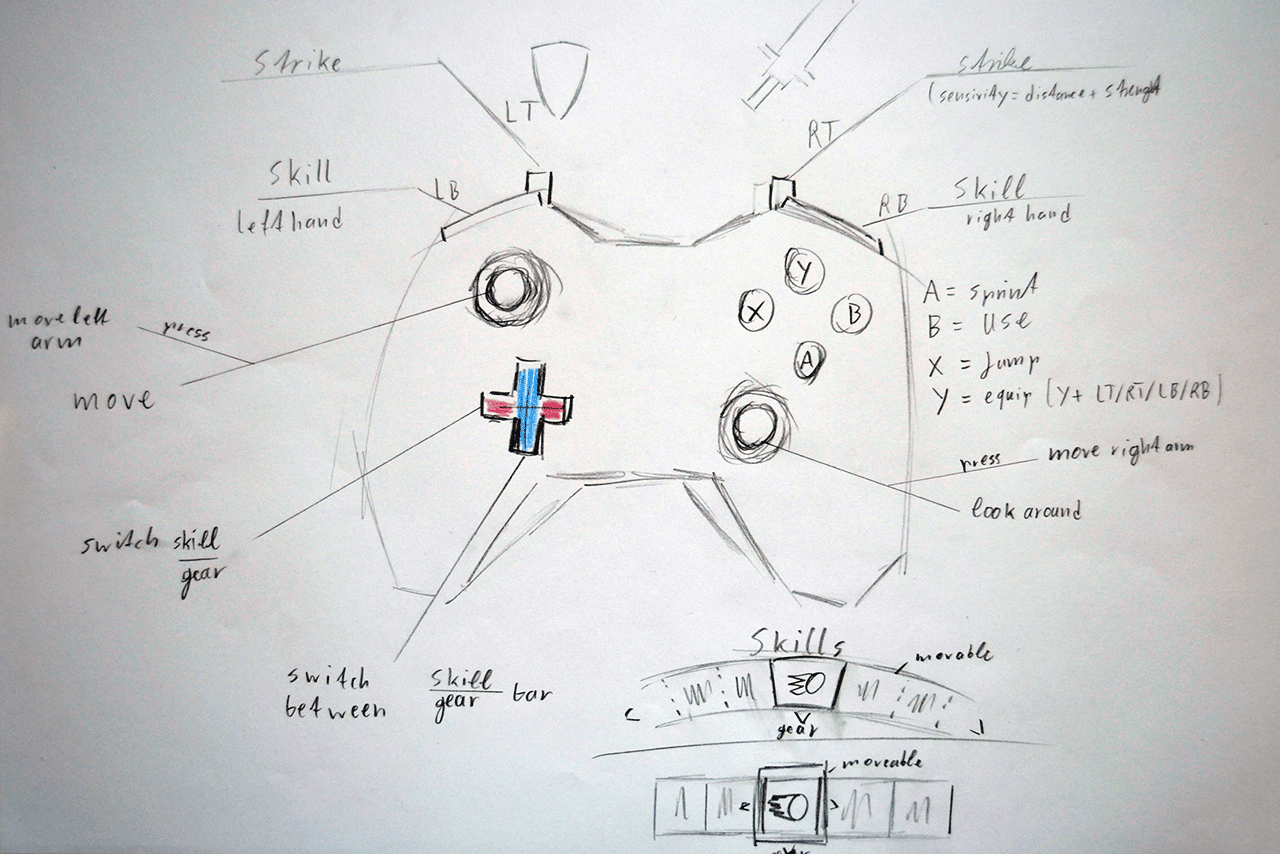 strike
LT
RT
strike
(sensivity = distance + strenght
skill
left hand
LB
RB
skill
right hand
Y
X
B
A
A = sprint
B = use
X = jump
Y = equip (Y + LT/RT/LB/RB)
move left
arm
press
move
press
move right arm
look around
switch skill
gear
switch
between
skill
gear
bar
Skills
movable
gear
moveable